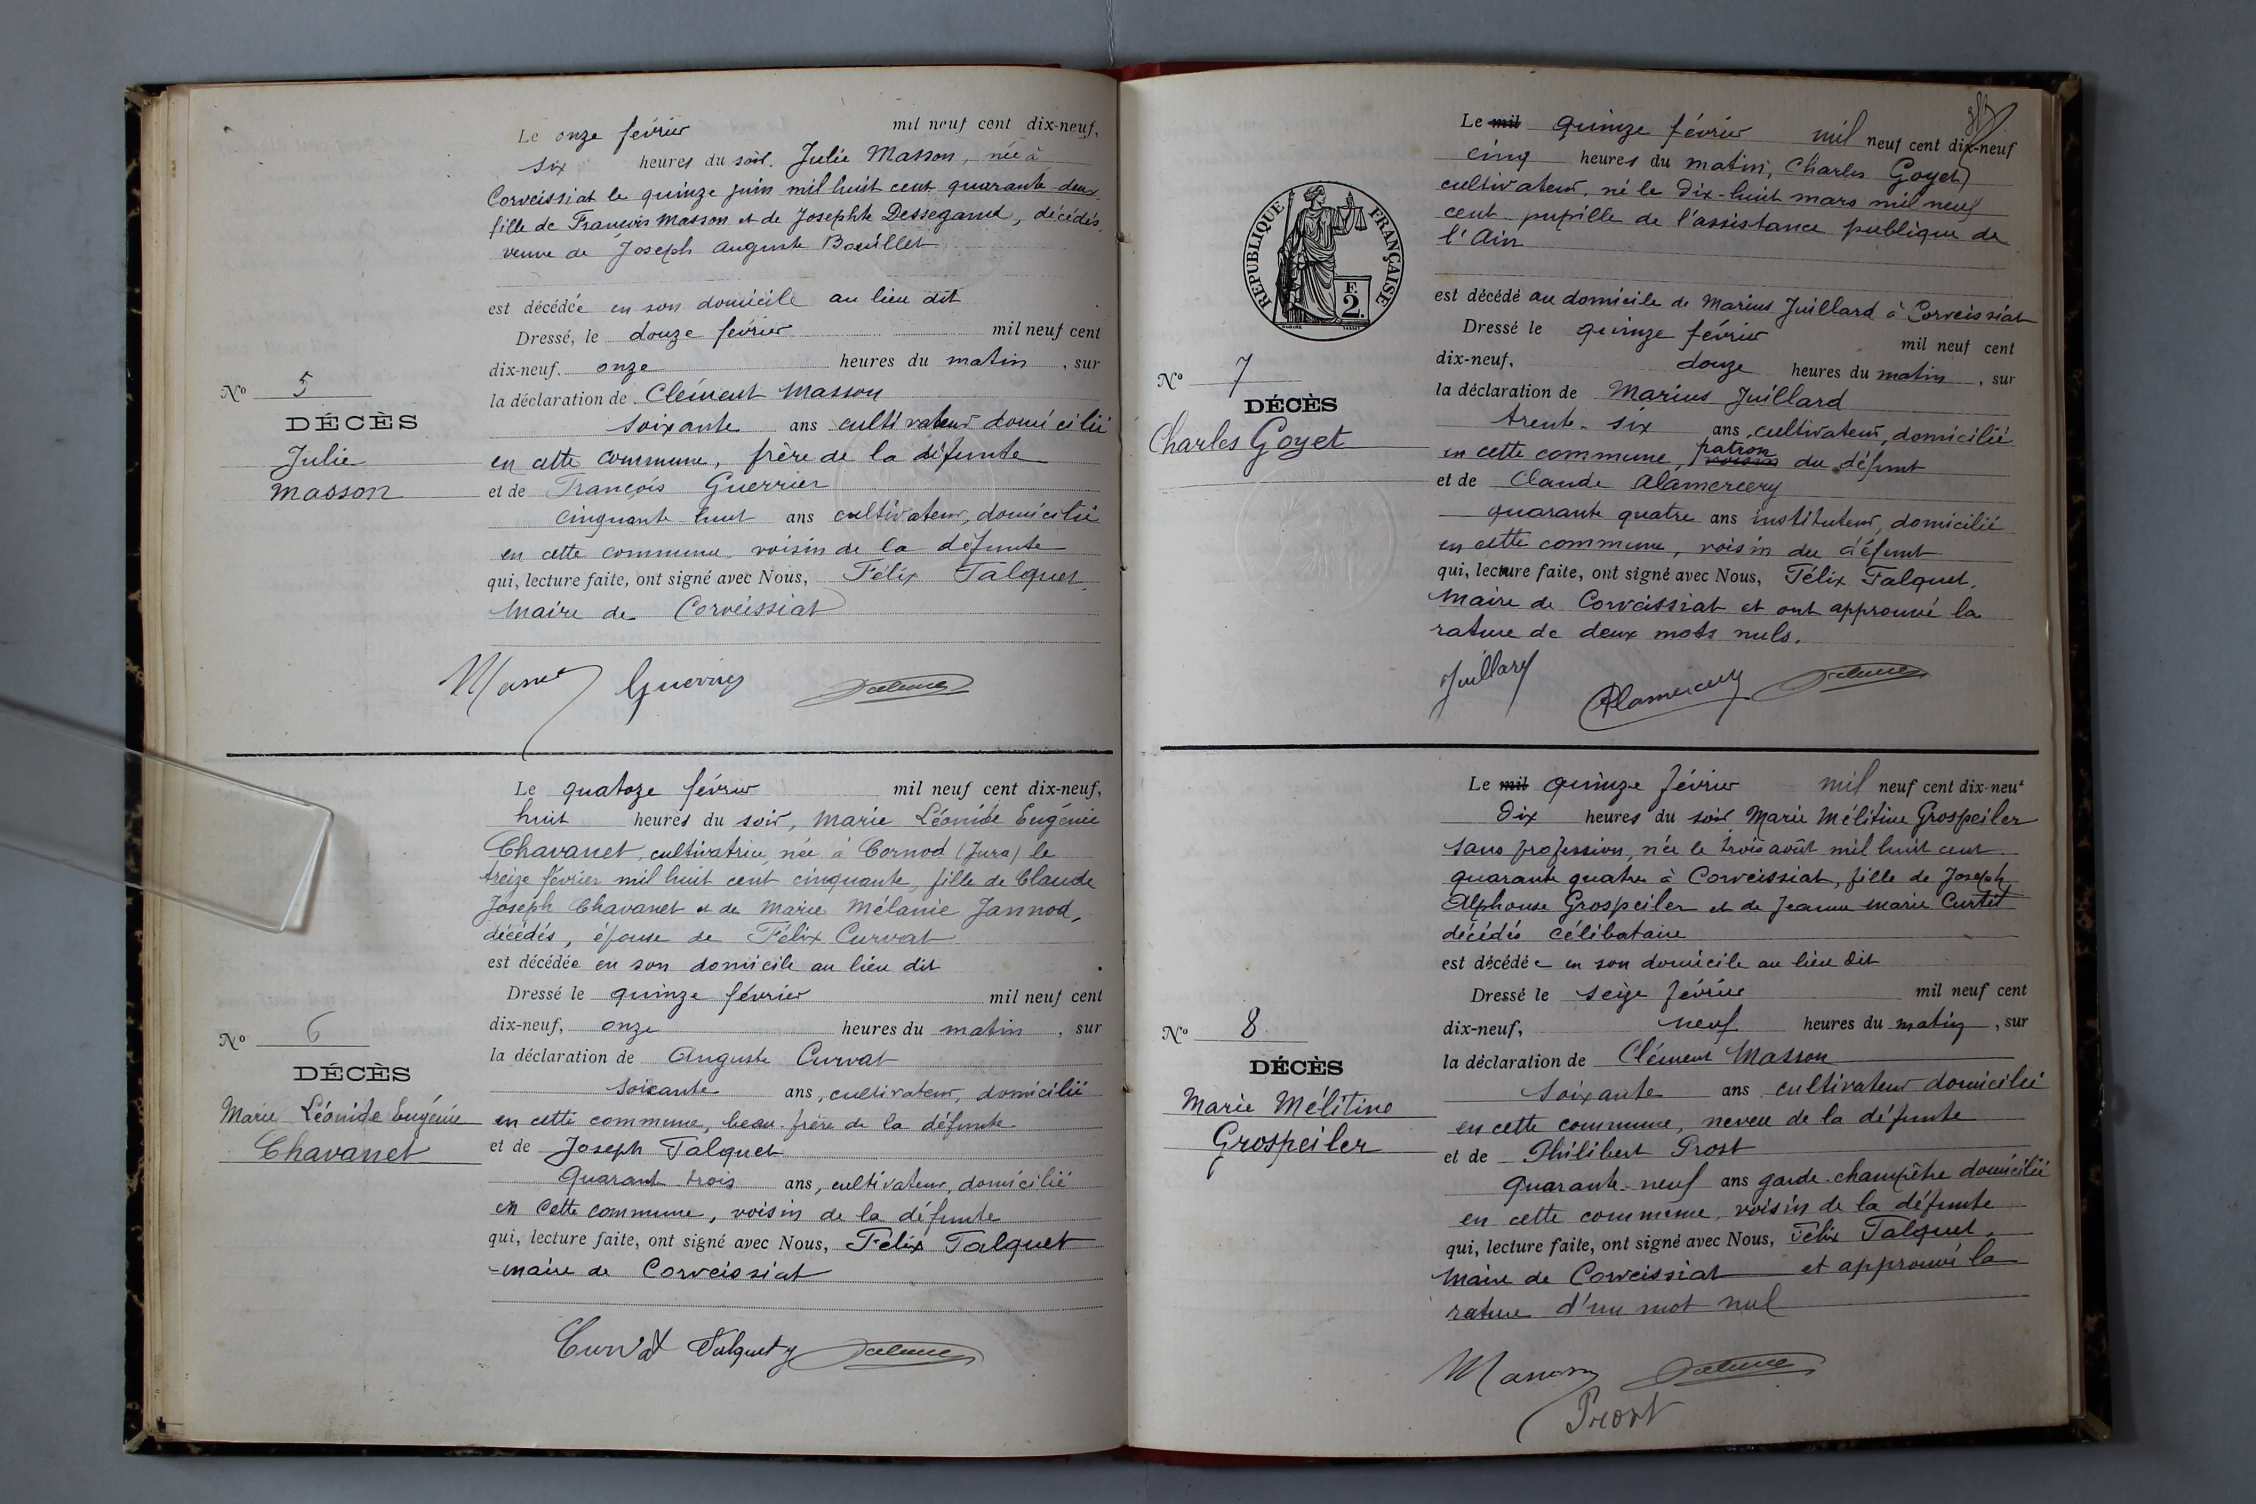 Le onze février mil neuf cent dix-neuf,
six heures du soir. Julie Masson, née à
Corveissiat le quinze juin mil huit cent quarante-deux
fille de François Masson et de Josephte Dessegand, décédés,
veuve de Joseph Auguste Bouillet
est décédée en son domicile au lieu dit
Dressé, le douze février mil neuf cent
dix-neuf. onze heures du matin, sur
la déclaration de Clément Masson
soixante ans cultivateur domicilié
en cette commune, frère de la défunte
et de François Guerrier
cinquante huit ans cultivateur, domicilié
en cette commune voisin de la défunte
qui, lecture faite, ont signé avec Nous, Félix Falquet,
Maire de Corveissiat
Nº 5
DÉCÈS
Julie
Masson
Masson Guerrier
Le quatoze février mil neuf cent dix-neuf,
huit heures du soir, Marie Léonide Eugénie
Chavanet, cultivatrice, née à Cornod (Jura) le
treize février mil huit cent cinquante, fille de Claude
Joseph Chavanet et de Marie Mélanie Jannod,
décédés, épouse de Félix Curvat
est décédée en son domicile au lieu dit
Dressé le quinze février mil neuf cent
dix-neuf, onze heures du matin, sur
la déclaration de Auguste Curvat
soixante ans, cultivateur, domicilié
en cette commune, beau-frère de la défunte
et de Joseph Falquet
Quarant trois ans, cultivateur, domicilié
en cette commune, voisin de la défunte
qui, lecture faite, ont signé avec Nous, Félix Falquet
maire de Corveissiat
Nº 6
DÉCÈS
Marie Léonide Eugénie
Chavanet
Curvat Falquet
Le mil quinze février mil neuf cent dix-neuf
cinq heures du matin, Charles Goyet
cultivateur, né le dix-huit mars mil neuf
cent pupille de l'assistance publique de
l'Ain
est décédé au domicile de Marius Juillard à Corveissiat
Dressé le quinze février mil neuf cent
dix-neuf, douze heures du matin, sur
la déclaration de Marius Juillard
trente-six ans, cultivateur, domicilié
patron
en cette commune, voisin du défunt
et de Claude Alamercery
quarante quatre ans instituteur, domicilié
en cette commune, voisin du défunt
qui, lecture faite, ont signé avec Nous, Félix Falquet,
Maire de Corveissiat et ont approuvé la
rature de deux mots nuls.
RÉPUBLIQUE FRANÇAISE
F.
2.
Nº 7
DÉCÈS
Charles Goyet
Juillard
Alamercery
Le mil quinze février mil neuf cent dix-neuf
dix heures du soir Marie Mélitine Grospeiler
sans profession, née le trois août mil huit cent
quarante quatre à Corveissiat, fille de Joseph
Alphonse Grospeiler et de Jeanne Marie Curtet
décédés célibataire
est décédée en son domicile au lieu dit
Dressé le seize février mil neuf cent
dix-neuf, neuf heures du matin, sur
la déclaration de Clément Masson
soixante ans cultivateur domicilié
en cette commune, neveu de la défunte
et de Philibert Prost
Quarante-neuf ans garde-champêtre domicilié
en cette commune, voisin de la défunte
qui, lecture faite, ont signé avec Nous, Félix Falquet,
Maire de Corveissiat et approuvé la
rature d'un mot nul
Nº 8
DÉCÈS
Marie Mélitine
Grospeiler
Masson
Prost